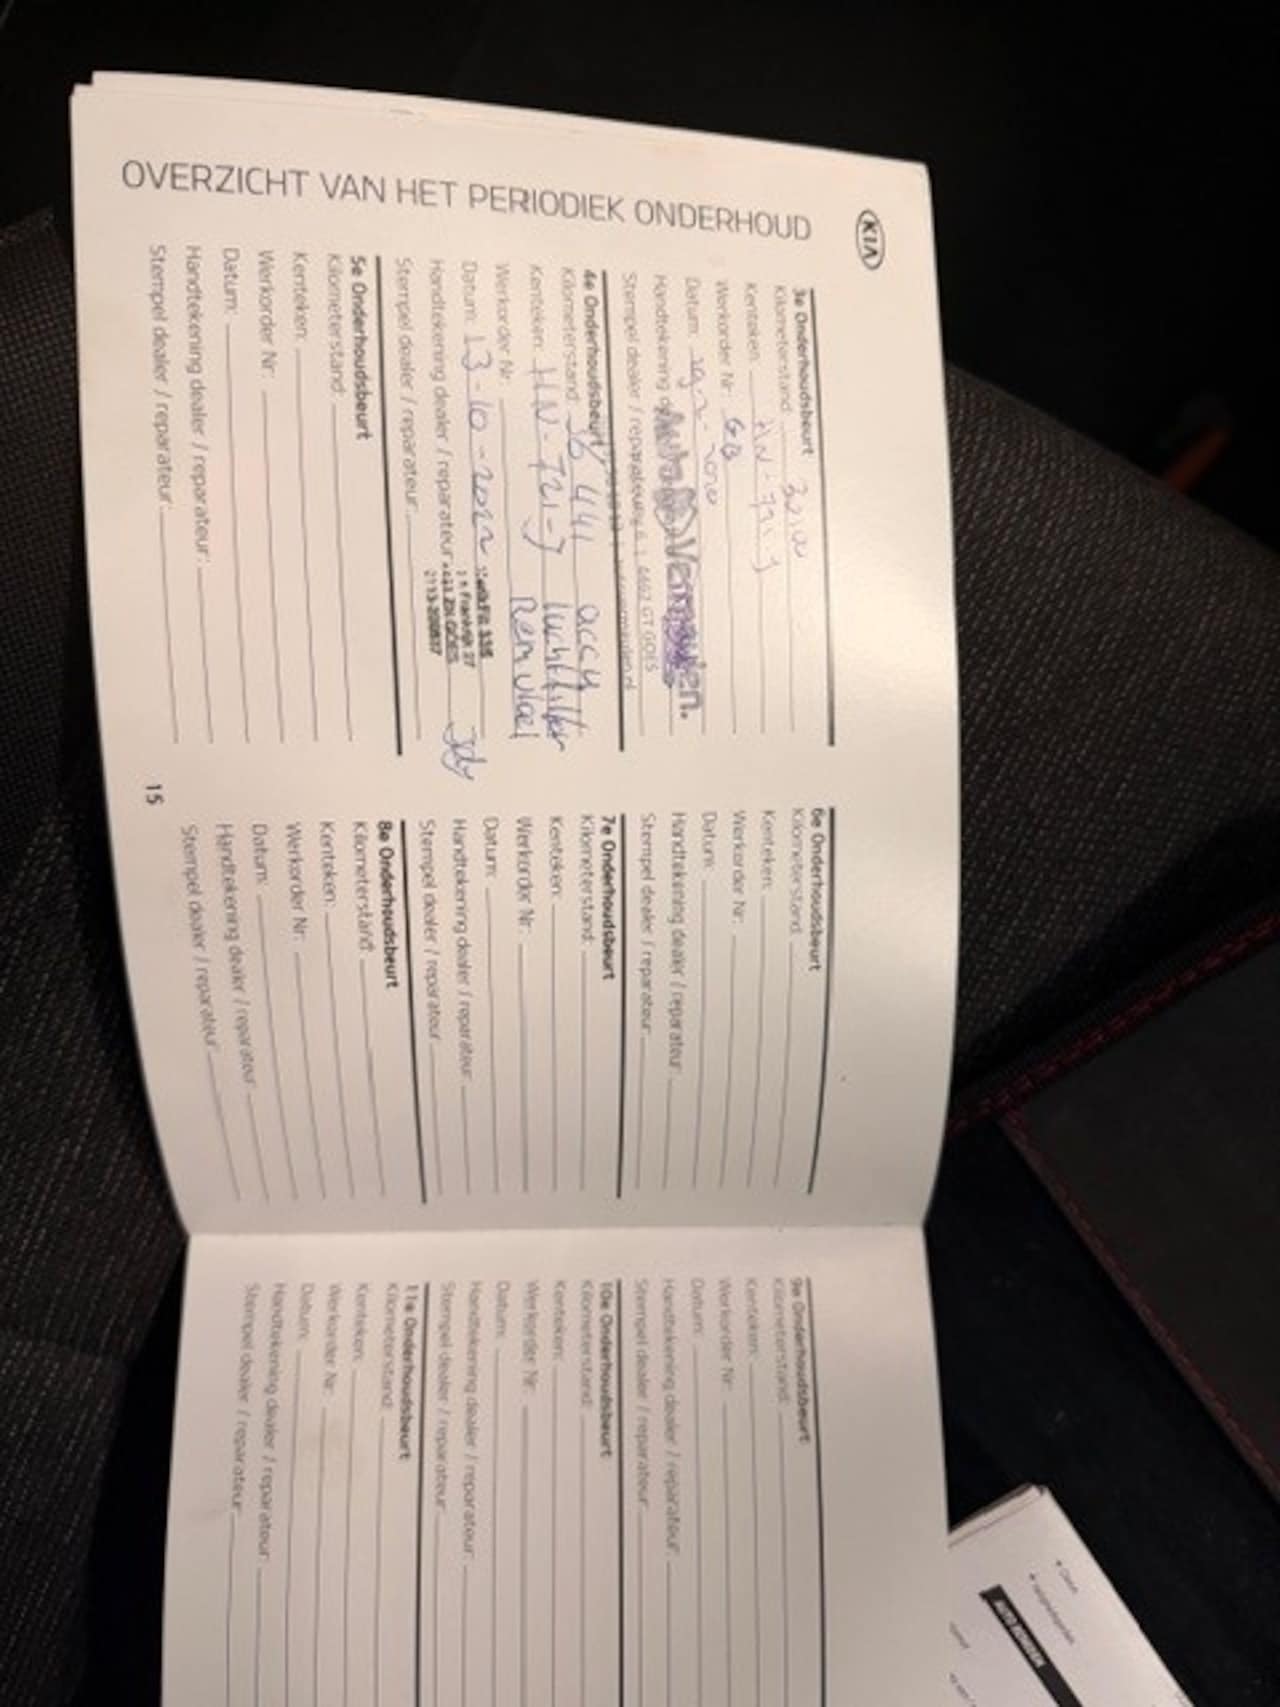 KIA
OVERZICHT VAN HET PERIODIEK ONDERHOUD
3e Onderhoudsbeurt
Kilometerstand:
Kenteken:
Werkorder Nr: GB
Datum:
Handtekening
Vermeulen.
Stempel dealer / reparateur
4462 GT GOES
4e Onderhoudsbeurt
Kilometerstand: 36 441 accu
Kenteken: HN-721-J luchtfilter
Werkorder Nr: Remvloei
Datum: 13-10-2022
Handtekening dealer / reparateur:
Stempel dealer / reparateur:
5e Onderhoudsbeurt
Kilometerstand:
Kenteken:
Werkorder Nr:
Datum:
Handtekening dealer / reparateur:
Stempel dealer / reparateur:
6e Onderhoudsbeurt
Kilometerstand:
Kenteken:
Werkorder Nr:
Datum:
Handtekening dealer / reparateur:
Stempel dealer / reparateur:
7e Onderhoudsbeurt
Kilometerstand:
Kenteken:
Werkorder Nr:
Datum:
Handtekening dealer / reparateur:
Stempel dealer / reparateur:
8e Onderhoudsbeurt
Kilometerstand:
Kenteken:
Werkorder Nr:
Datum:
Handtekening dealer / reparateur:
Stempel dealer / reparateur:
15
9e Onderhoudsbeurt
Kilometerstand:
Kenteken:
Werkorder Nr:
Datum:
Handtekening dealer / reparateur:
Stempel dealer / reparateur:
10e Onderhoudsbeurt
Kilometerstand:
Kenteken:
Werkorder Nr:
Datum:
Handtekening dealer / reparateur:
Stempel dealer / reparateur:
11e Onderhoudsbeurt
Kilometerstand:
Kenteken:
Werkorder Nr:
Datum:
Handtekening dealer / reparateur:
Stempel dealer / reparateur: